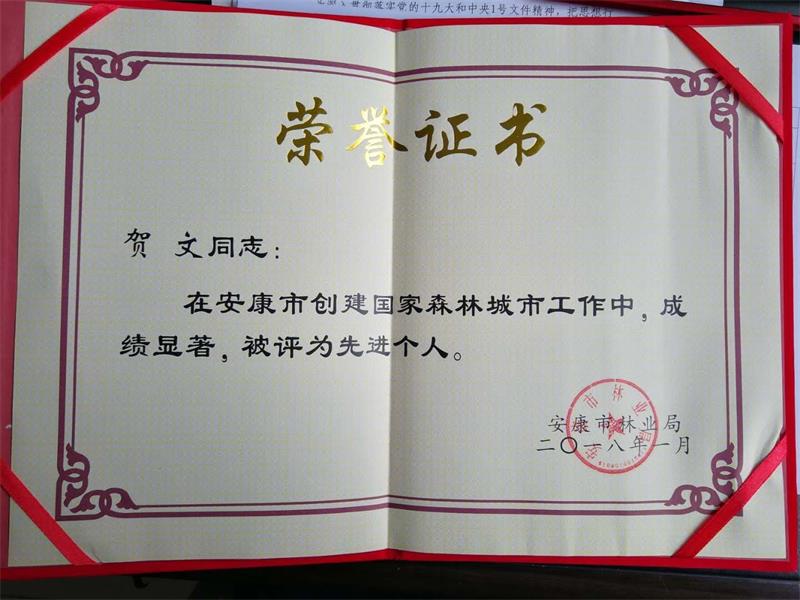 贯彻落实党的十九大和中央1号文件精神，把思想行
荣誉证书
贺 文同志：
在安康市创建国家森林城市工作中，成
绩显著，被评为先进个人。
安康市林业局
二〇一八年一月
安康市林业局